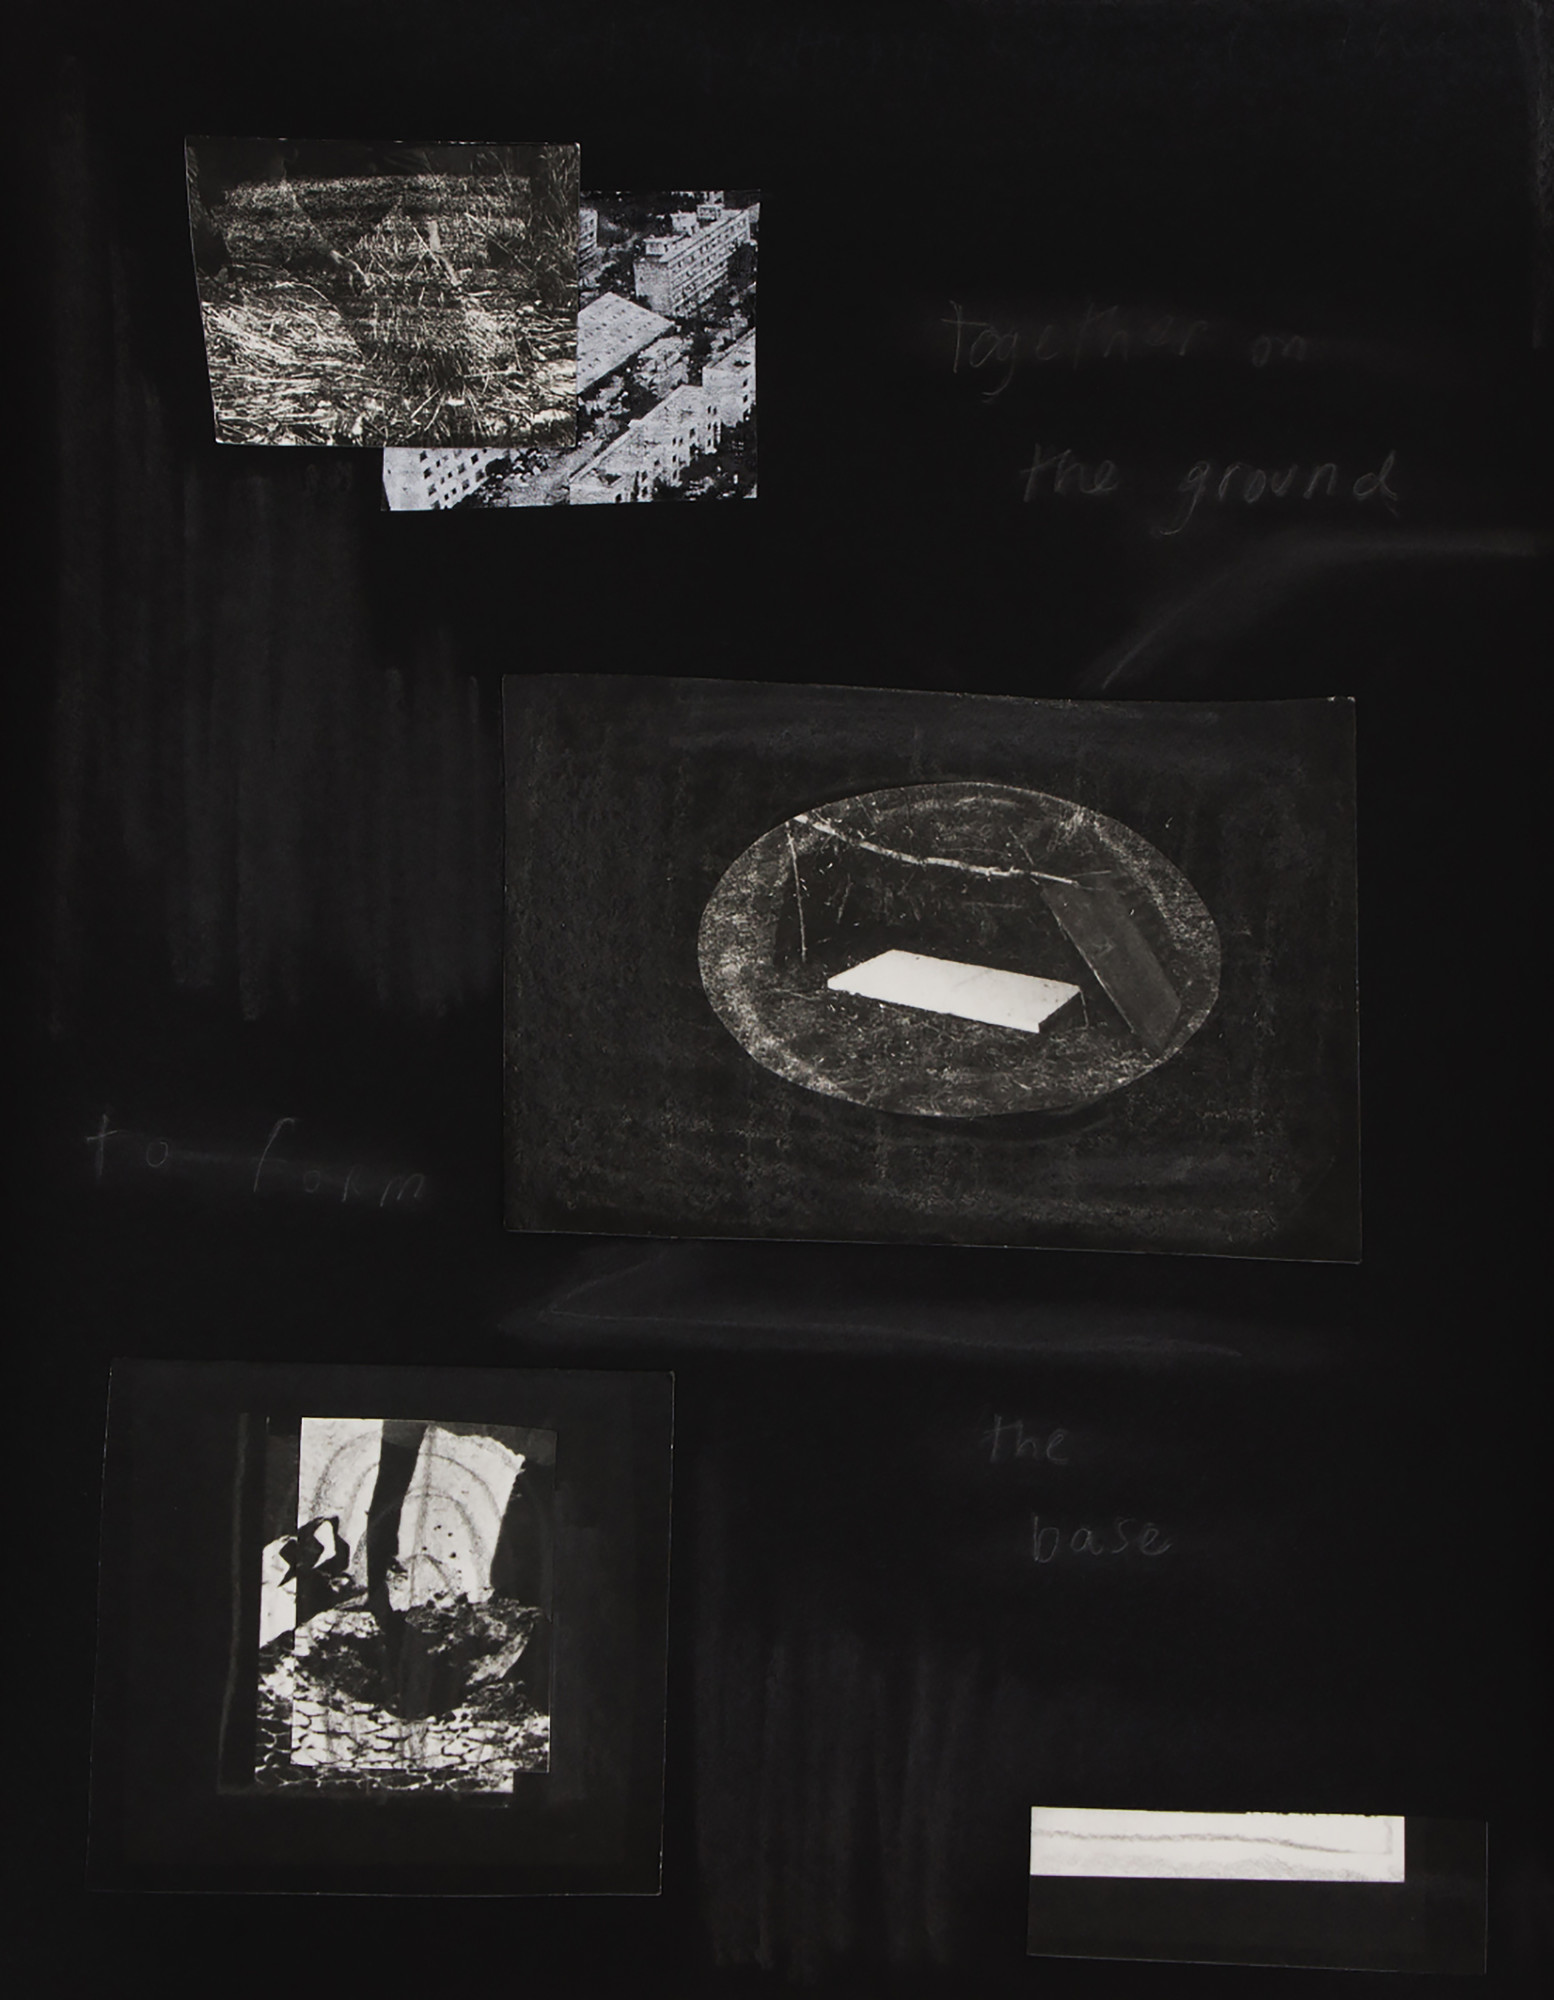 together on
the ground
to form
the
base